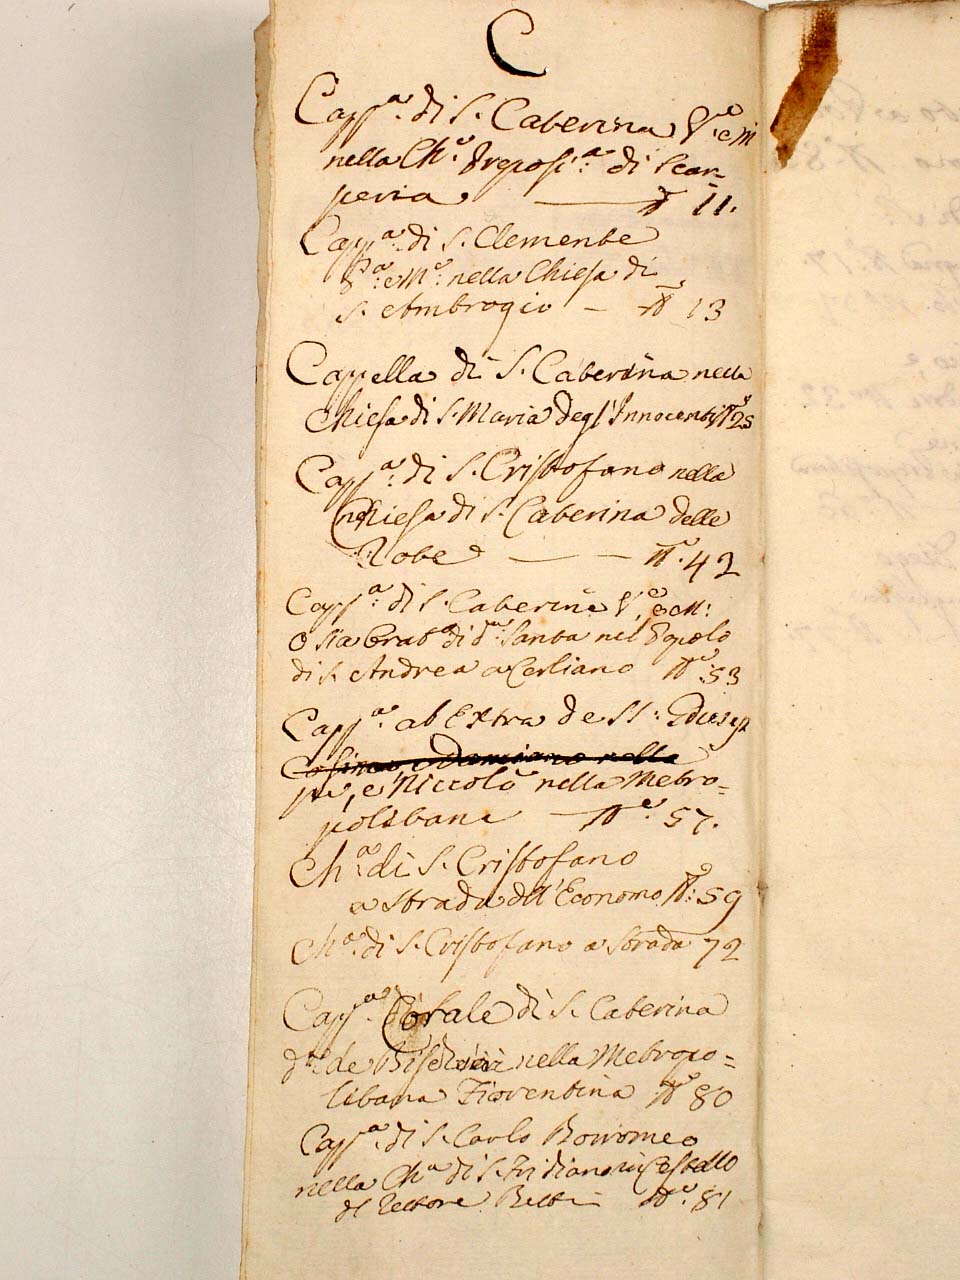 C
Capp.ª di S. Caterina V.e e M
nella Ch.ª Preposi.ª di Scar-
peria — N 11.
Capp.ª di S. Clemente
P.ª e M.e nella Chiesa di
S. Ambrogio — N 13
Cappella di S. Caterina nella
Chiesa di S. Maria degl'Innocenti N.º 25
Capp.ª di S. Cristofano nella
Chiesa di S. Caterina delle
Rote — N.º 42
Capp.ª di S. Caterina V.e e M:
o sia di d.ª Santa nel Popolo
di S. Andrea a Cerliano N.º 53
Capp.ª ab Extra de SS:
Cosimo e Damiano nella
e Niccolò nella Metro-
politana — N.º 57.
Ch.ª di S. Cristofano
a Strada dell'Economo N.º 59
Ch.ª di S. Cristofano a Strada 72
Capp.ª Corale di S. Caterina
d.ª de nella Metropo-
litana Fiorentina N.º 80
Capp.ª di S. Carlo Borromeo
nella Ch.ª di S. Fridiano in Castello
Rettore N.º 81